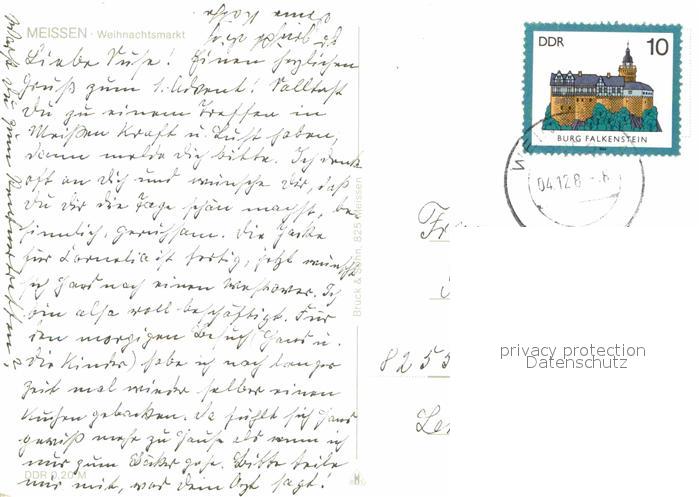 MEISSEN · Weihnachtsmarkt
Liebe Suse! Einen herzlichen
Gruß zum 1. Advent! Solltest
Du zu einem Treffen in
Meißen Kraft u. Lust haben,
dann melde Dich bitte. Ich denk
oft an Dich und wünsche Dir, daß
Du Dir die Tage schön machst, be-
sinnlich, geruhsam. Die Jacke
für Cornelia ist fertig, jetzt wünscht
sich Hans noch einen Westover. Ich
bin also voll beschäftigt. Für
den morgigen Besuch (Hans u.
die Kinder) habe ich nach langer
Zeit mal wieder selber einen
Kuchen gebacken. Da fühlt sich Hans
gewiß mehr zu Hause als wenn ich
nur zum Bäcker gehe. Bitte teile
mir mit, was dein Arzt sagt!
DDR 0,20 M
Bruck & Sohn, 825 Meissen
DDR 10
BURG FALKENSTEIN
04.12.8
8255
privacy protection
Datenschutz